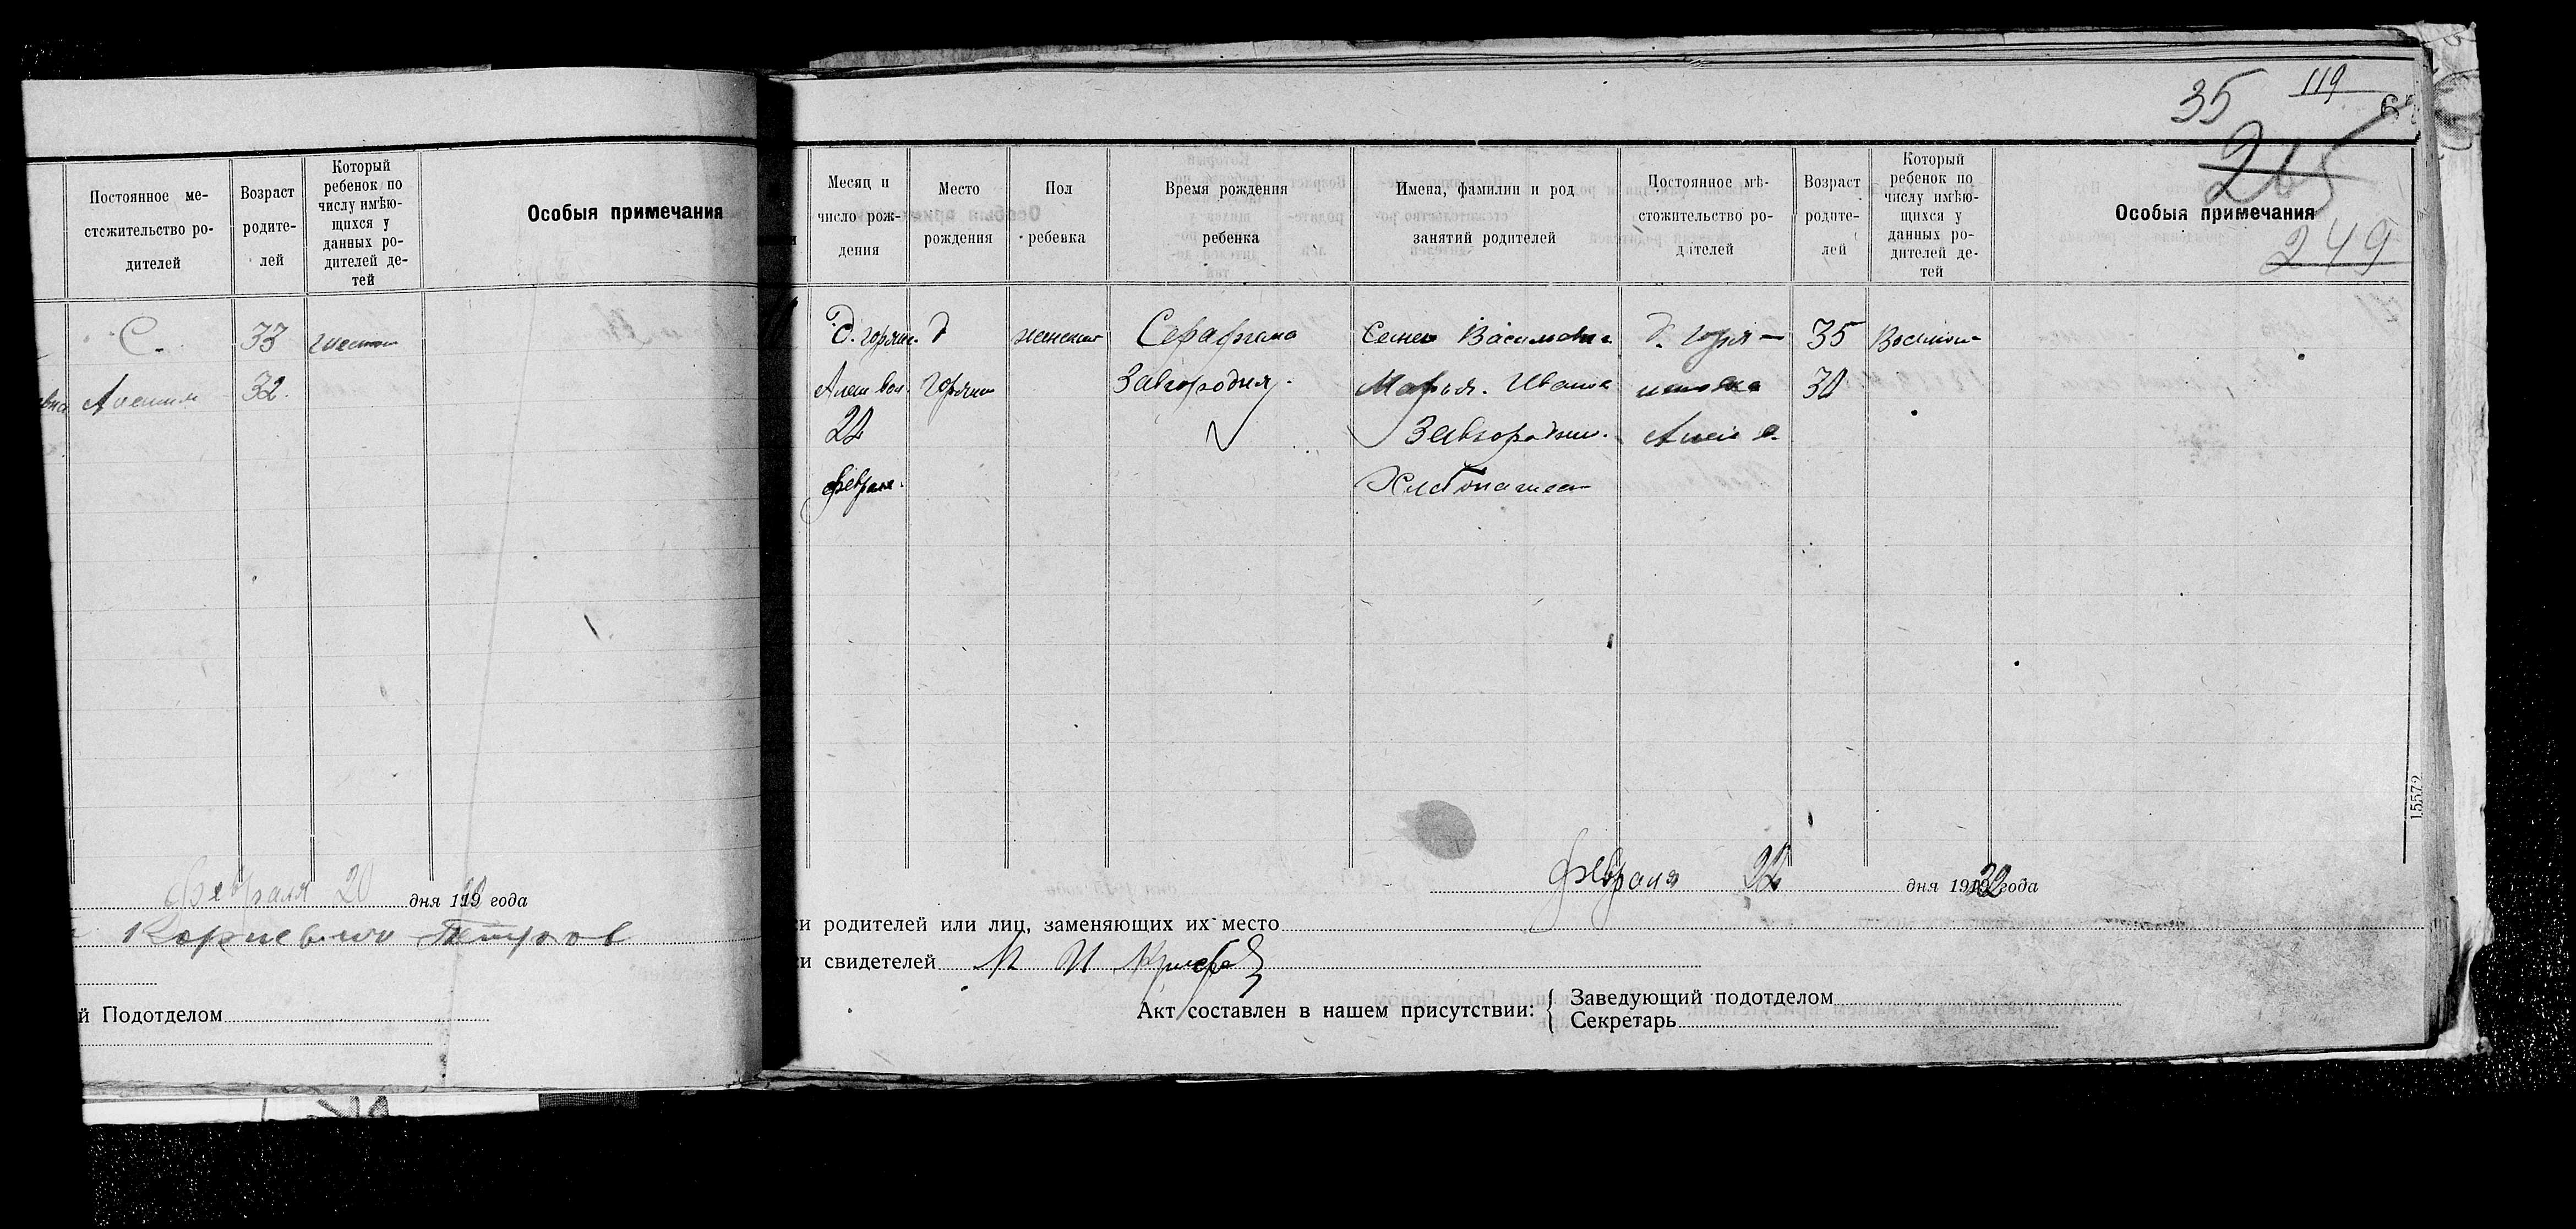 Постоянное ме-
стожительство ро-
дителей
Возраст
родите-
лей
Который
ребенок по
числу имѣю-
щихся у
данных ро-
дителей де-
тей
Особыя примечания
С.
33
шестой
32.
Февраля 20 дня 19 года
Корневич Петров
й Подотделом
35
119
265
249
Месяц и
число рож-
дения
Место
рождения
Пол
ребенка
Время рождения
ребенка
Имена, фамилии и род
занятий родителей
Постоянное мѣ-
стожительство ро-
дителей
Возраст
родите-
лей
Который
ребенок по
числу имѣю-
щихся у
данных ро-
дителей де-
тей
Особыя примечания
д
женский
Серафима
Завгородня.
Семен Васильевич
Марья. Ивановна
Завгородний.
Хлебопашец
35
30
Восьмой
февраля.
15572
февраля 22 дня 1922 года
и родителей или лиц, заменяющих их место
и свидетелей М И
Акт составлен в нашем присутствии:
Заведующий подотделом
Секретарь